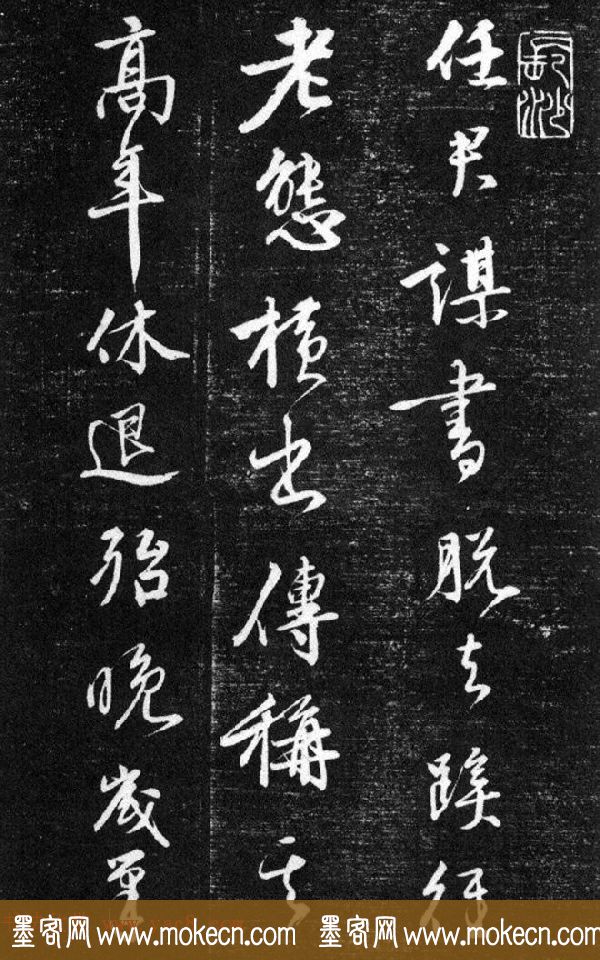 任君謀書脫去蹊徑
老態橫出傳稱其
高年休退殆晚歲
墨客网 www.mokecn.com 墨客网 www.mokecn.com